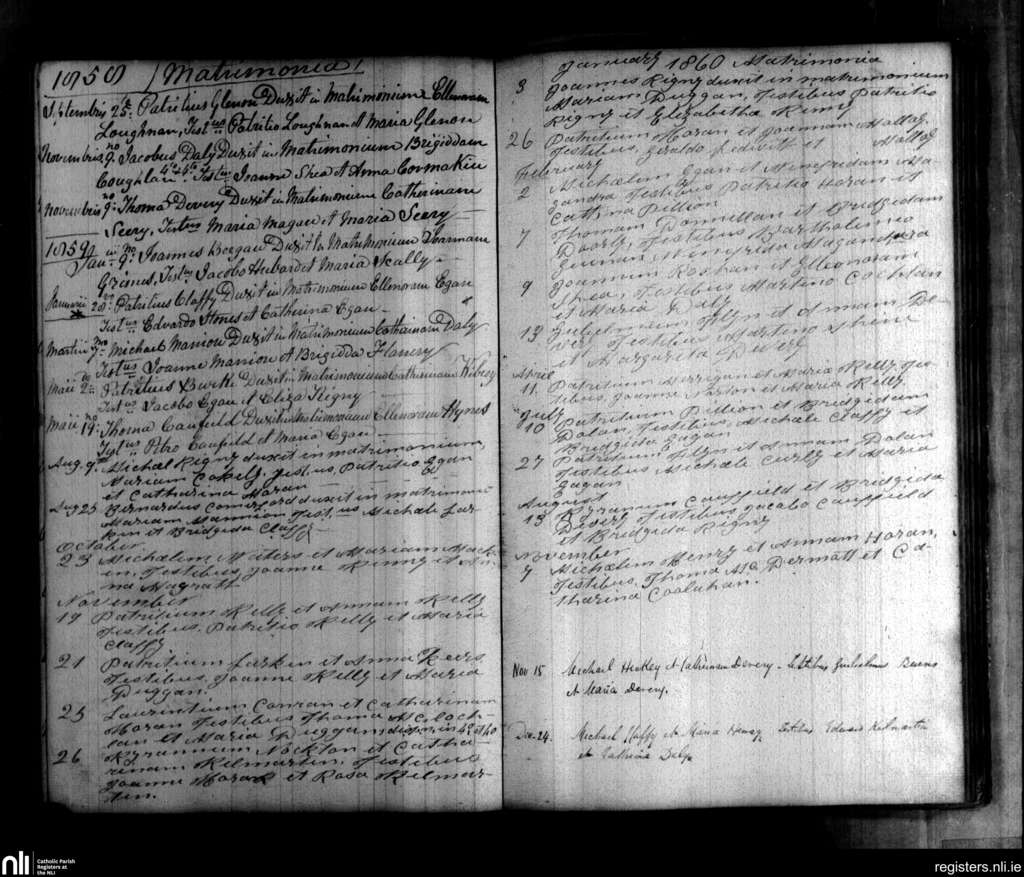 1858 Matrimonia
Septembris 25º Patritius Glenon Duxit in Matrimonium Ellenoram
Loughnan, Testus Patritio Loughnan et Maria Glenon
Novembris 9º Jacobus Daly Duxit in Matrimonium Brigiddam
Coughlan Testus Joanne Shea et Anna Cormakin
Novembris 9º Thoma Devery Duxit in Matrimonium Catherinam
Seery, Testus Maria Magan et Maria Seery
1859
Jan. 9º Joannes Duxit in Matrimonium
Grimes, Testus Jacobo Hubard et Maria Scally
Januarii 28º Patritius Claffy Duxit in Matrimonium Ellenoram Egan
Testus Edvardo et Catherina Egan
Martii 7º Michael Manion Duxit in Matrimonium Catherinam Daly
Testus Joanne Manion et Brigidda Flanery
Maii 2º Patritius Burke Duxit in Matrimonium Catherinam
Testus Jacobo Egan et Eliza Rigny
Maii 19º Thoma Caufield Duxit in Matrimonium Ellenoram Hynes
Testus Petro Caufield et Maria Egan
Aug. 9th Michael Rigny duxit in matrimonium
Mariam Testus, Patritio Egan
et Catharina Moran
Aug 25 Bernardus Comerford duxit in matrimoni
Mariam Mannion Testus Michale Lar-
kin et Bridgida Claffy
October
23 Michælem Waters et Mariam Mack-
en, Testibus Joanne Kenny et An-
na Magratt
November
19 Patritium Kelly et Annam Kelly
Testibus, Patritio Kelly et Maria
Claffy
21 Patritium Larkin et Anna Keers
Testibus, Joanne Kelly et Maria
Duggan.
25 Laurintium Conran et Catharinam
Horan Testibus Thoma Mc Loch-
lan et Maria Duggan, dispen. in 4º et 4º
26 Kyrannum Nockton et Catha-
rinam Kilmartin, Testibus
Joanne Horan et Rosa Kilmar-
tin.
January 1860 Matrimonia
3 Joannes Rigny duxit in matrimonium
Mariam Duggan, Testibus Patritio
Rigny et Elizabetha Kenny
26 Patritium Horan et Joannam
Testibus, Geraldo et
February
2 Michælem Egan et Menefredam Ma-
gandra Testibus Patritio Horan et
Catrina Dillion
7 Thomam Donnellan et Bridgidam
Doorly, Testibus Bartholimeo
et Menefrida Magandra
9 Joannem et Elleonoram
Shea, Testibus Martino Coghlan
et Maria Daly
13 Gulielmum et Annam De-
very Testibus Martino
et Margarita Devery
April
11. Patritium Kerrigan et Maria Kelly, Tes-
tibus, Joanne et Maria Kelly.
July
10 Patritium Dillion et Bridgidam
Dolan, Testibus, Michale Claffy et
Bridgida Eagan
27 Patritium et Annam Dolan
Testibus Michale Curly et Maria
Eagan.
August
13 Kyrannum Cauffield et Bridgida
Devery Testibus Jacobo Cauffield
et Bridgida Rigny
November
7 Michælem Henry et Annam Horan,
Testibus, Thoma Mc Dermatt et Ca-
tharina Coolahan.
Nov 15 Michael et Catherinam Devery - testibus Gulielmus
et Maria Devery.
Dec. 24. Michael et Maria testibus Edward Kilmartin
et Catherina Daly
nli
Catholic Parish
Registers at
the NLI
registers.nli.ie